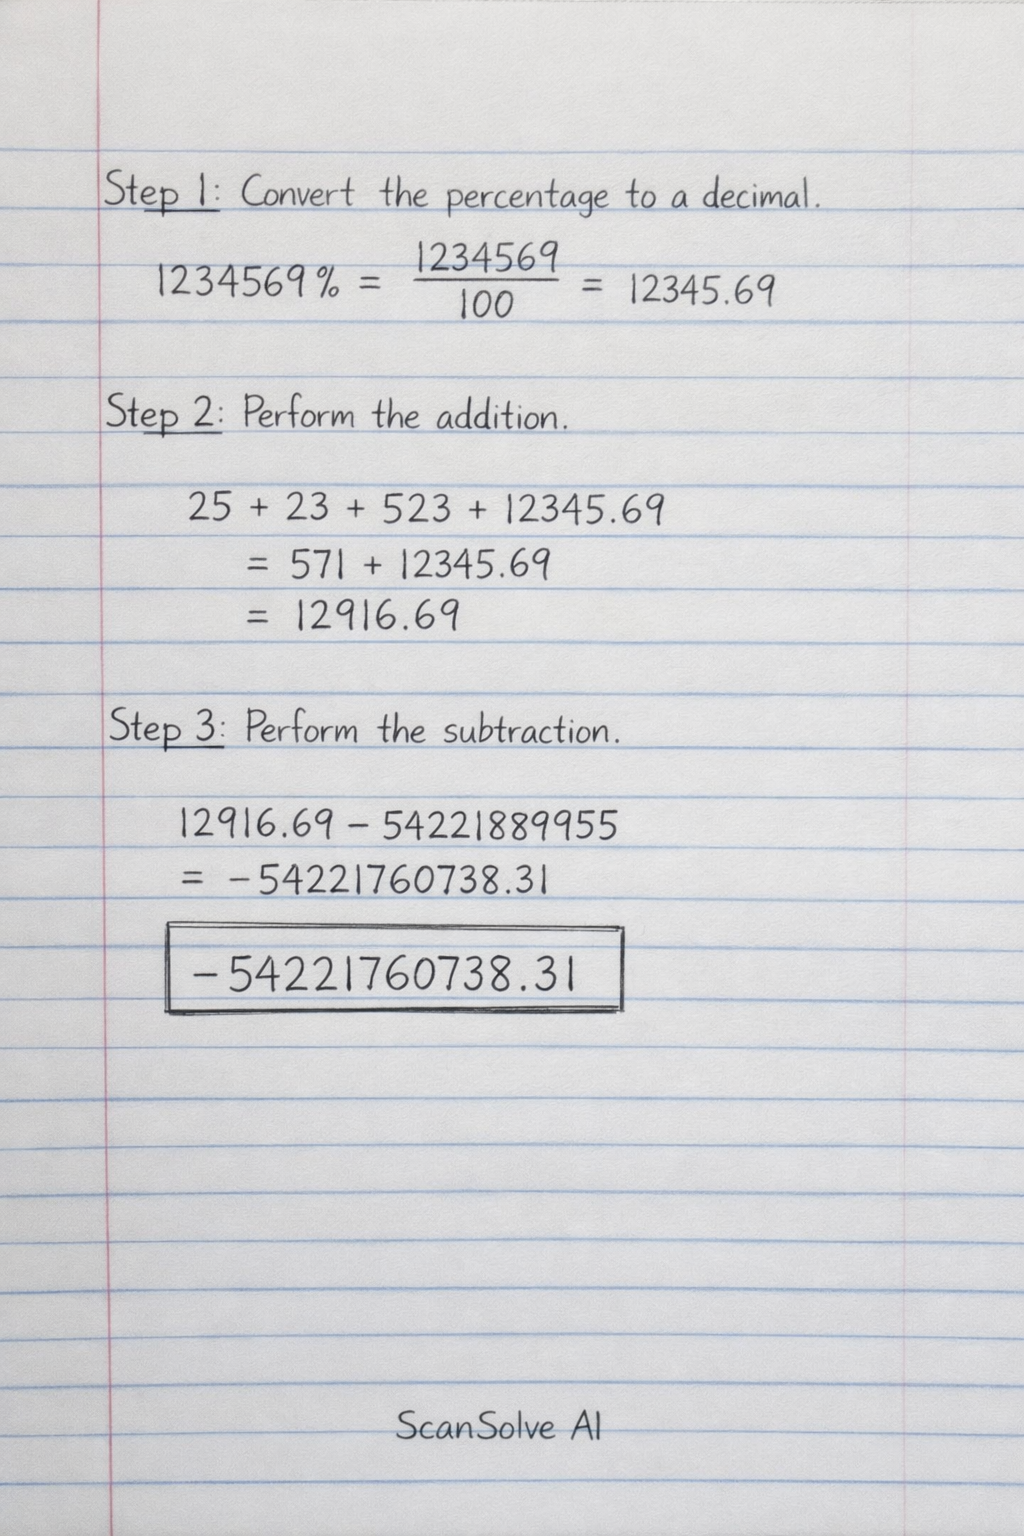 Step 1: Convert the percentage to a decimal.
1234569% = 1234569/100 = 12345.69
Step 2: Perform the addition.
25 + 23 + 523 + 12345.69
= 571 + 12345.69
= 12916.69
Step 3: Perform the subtraction.
12916.69 − 54221889955
= −54221760738.31
−54221760738.31
ScanSolve AI